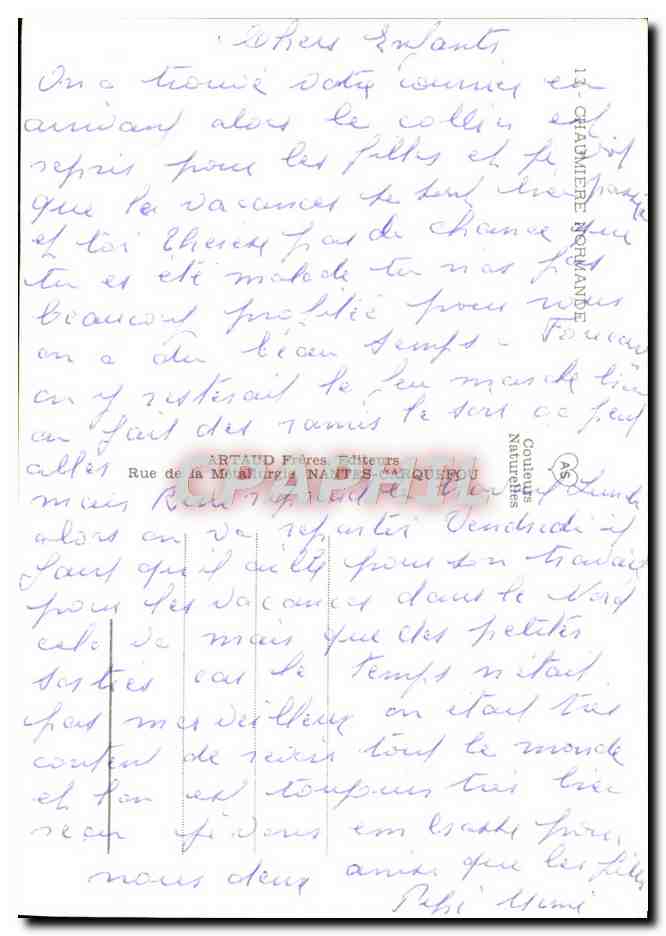 chers Enfants
On a trouvé votre courrier en
arrivant alors le collier est
repris pour les filles et je vois
que les vacances se sont bien passées
et toi Thérèse pas de chance que
tu es été malade tu n'as pas
beaucoup profitée pour nous
on a du beau temps -
on y resterait le feu marche bien
on fait des ramis le soir
mais René reprend le travail Lundi
alors on va repartir Vendredi il
faut qu'il aille pour son travail
pour les vacances dans le Nord
cela va mais que des petites
sorties car le temps n'était
pas merveilleux on était très
content de revoir tout le monde
et l'on est toujours très bien
reçu je vous embrasse pour
nous deux ainsi que les filles
Papi Mimi
13 - CHAUMIERE NORMANDE
ARTAUD Frères, Editeurs
Rue de la Métallurgie NANTES-CARQUEFOU
Couleurs
Naturelles
AS
CPAPHIL